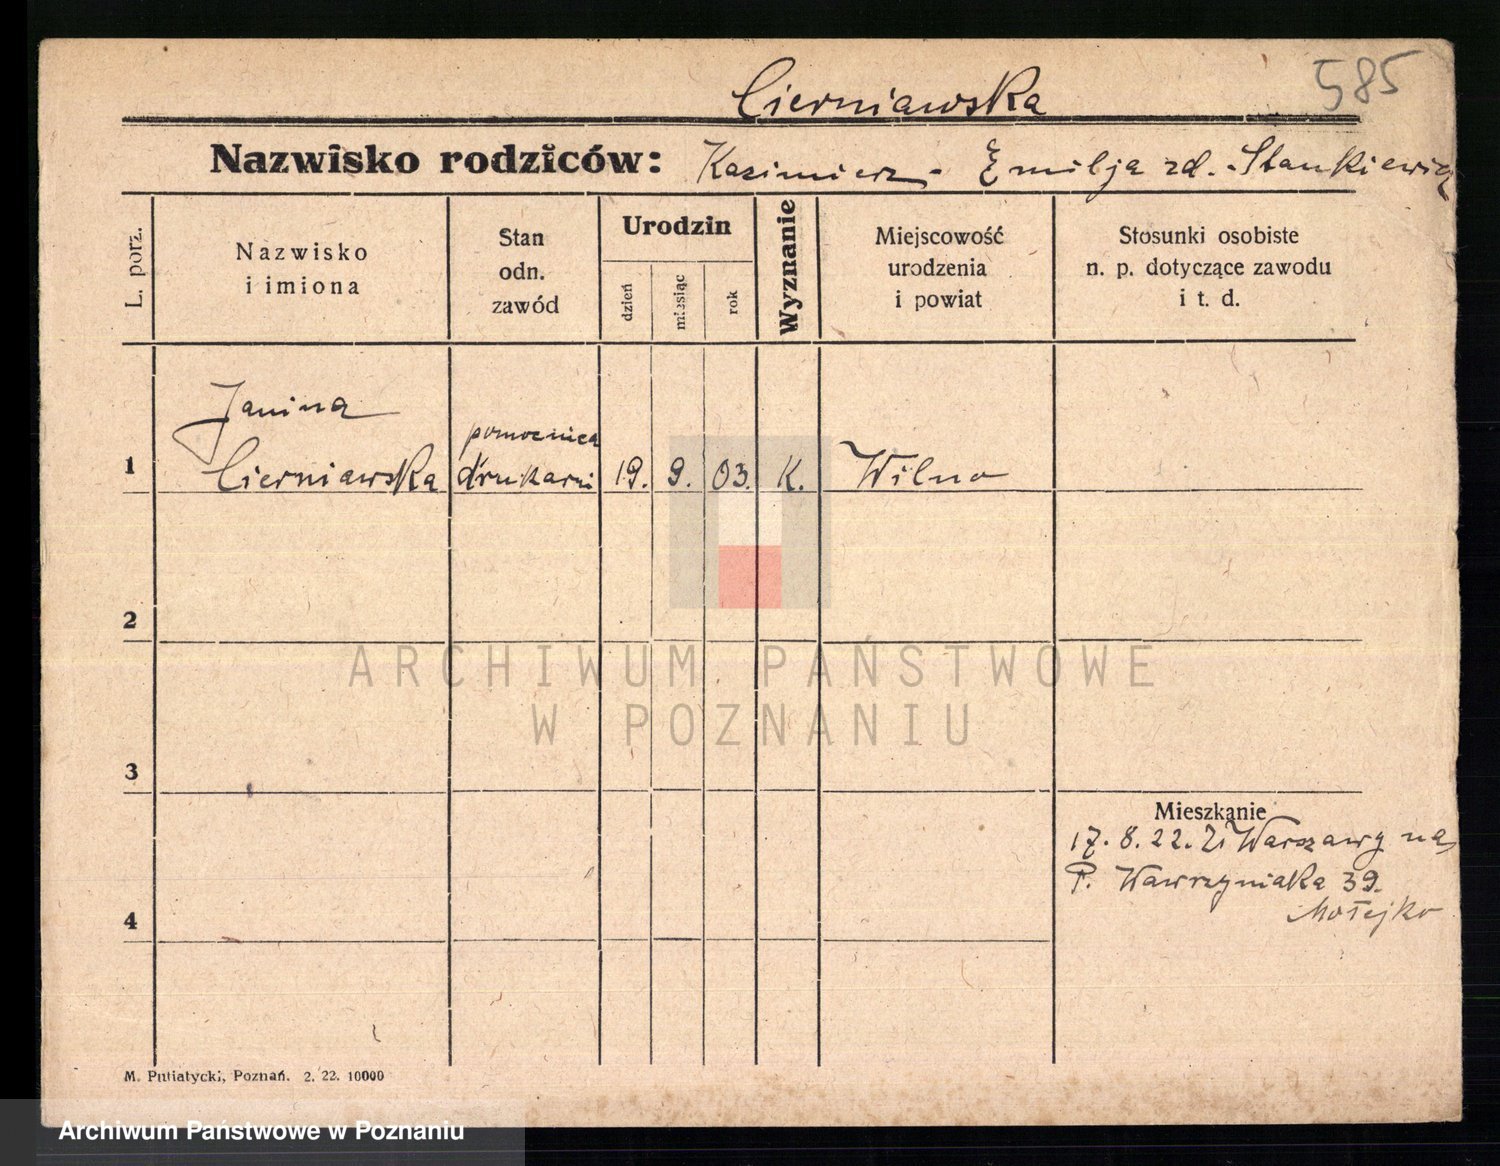 Cierniawska
585
Nazwisko rodziców: Kazimierz - Emilja zd. Stankiewicz
L. porz.
Nazwisko
i imiona
Stan
odn.
zawód
Urodzin
dzień
miesiąc
rok
Wyznanie
Miejscowość
urodzenia
i powiat
Stosunki osobiste
n. p. dotyczące zawodu
i t. d.
Janina
pomocnica
1 Cierniawska drukarni 19. 9. 03. K. Wilno
2
ARCHIWUM PAŃSTWOWE
W POZNANIU
3
Mieszkanie
17. 8. 22. Z Warszawy na
P. Wawrzyniaka 39.
4
Mołejko
M. Putiatycki, Poznań. 2. 22. 10000
Archiwum Państwowe w Poznaniu